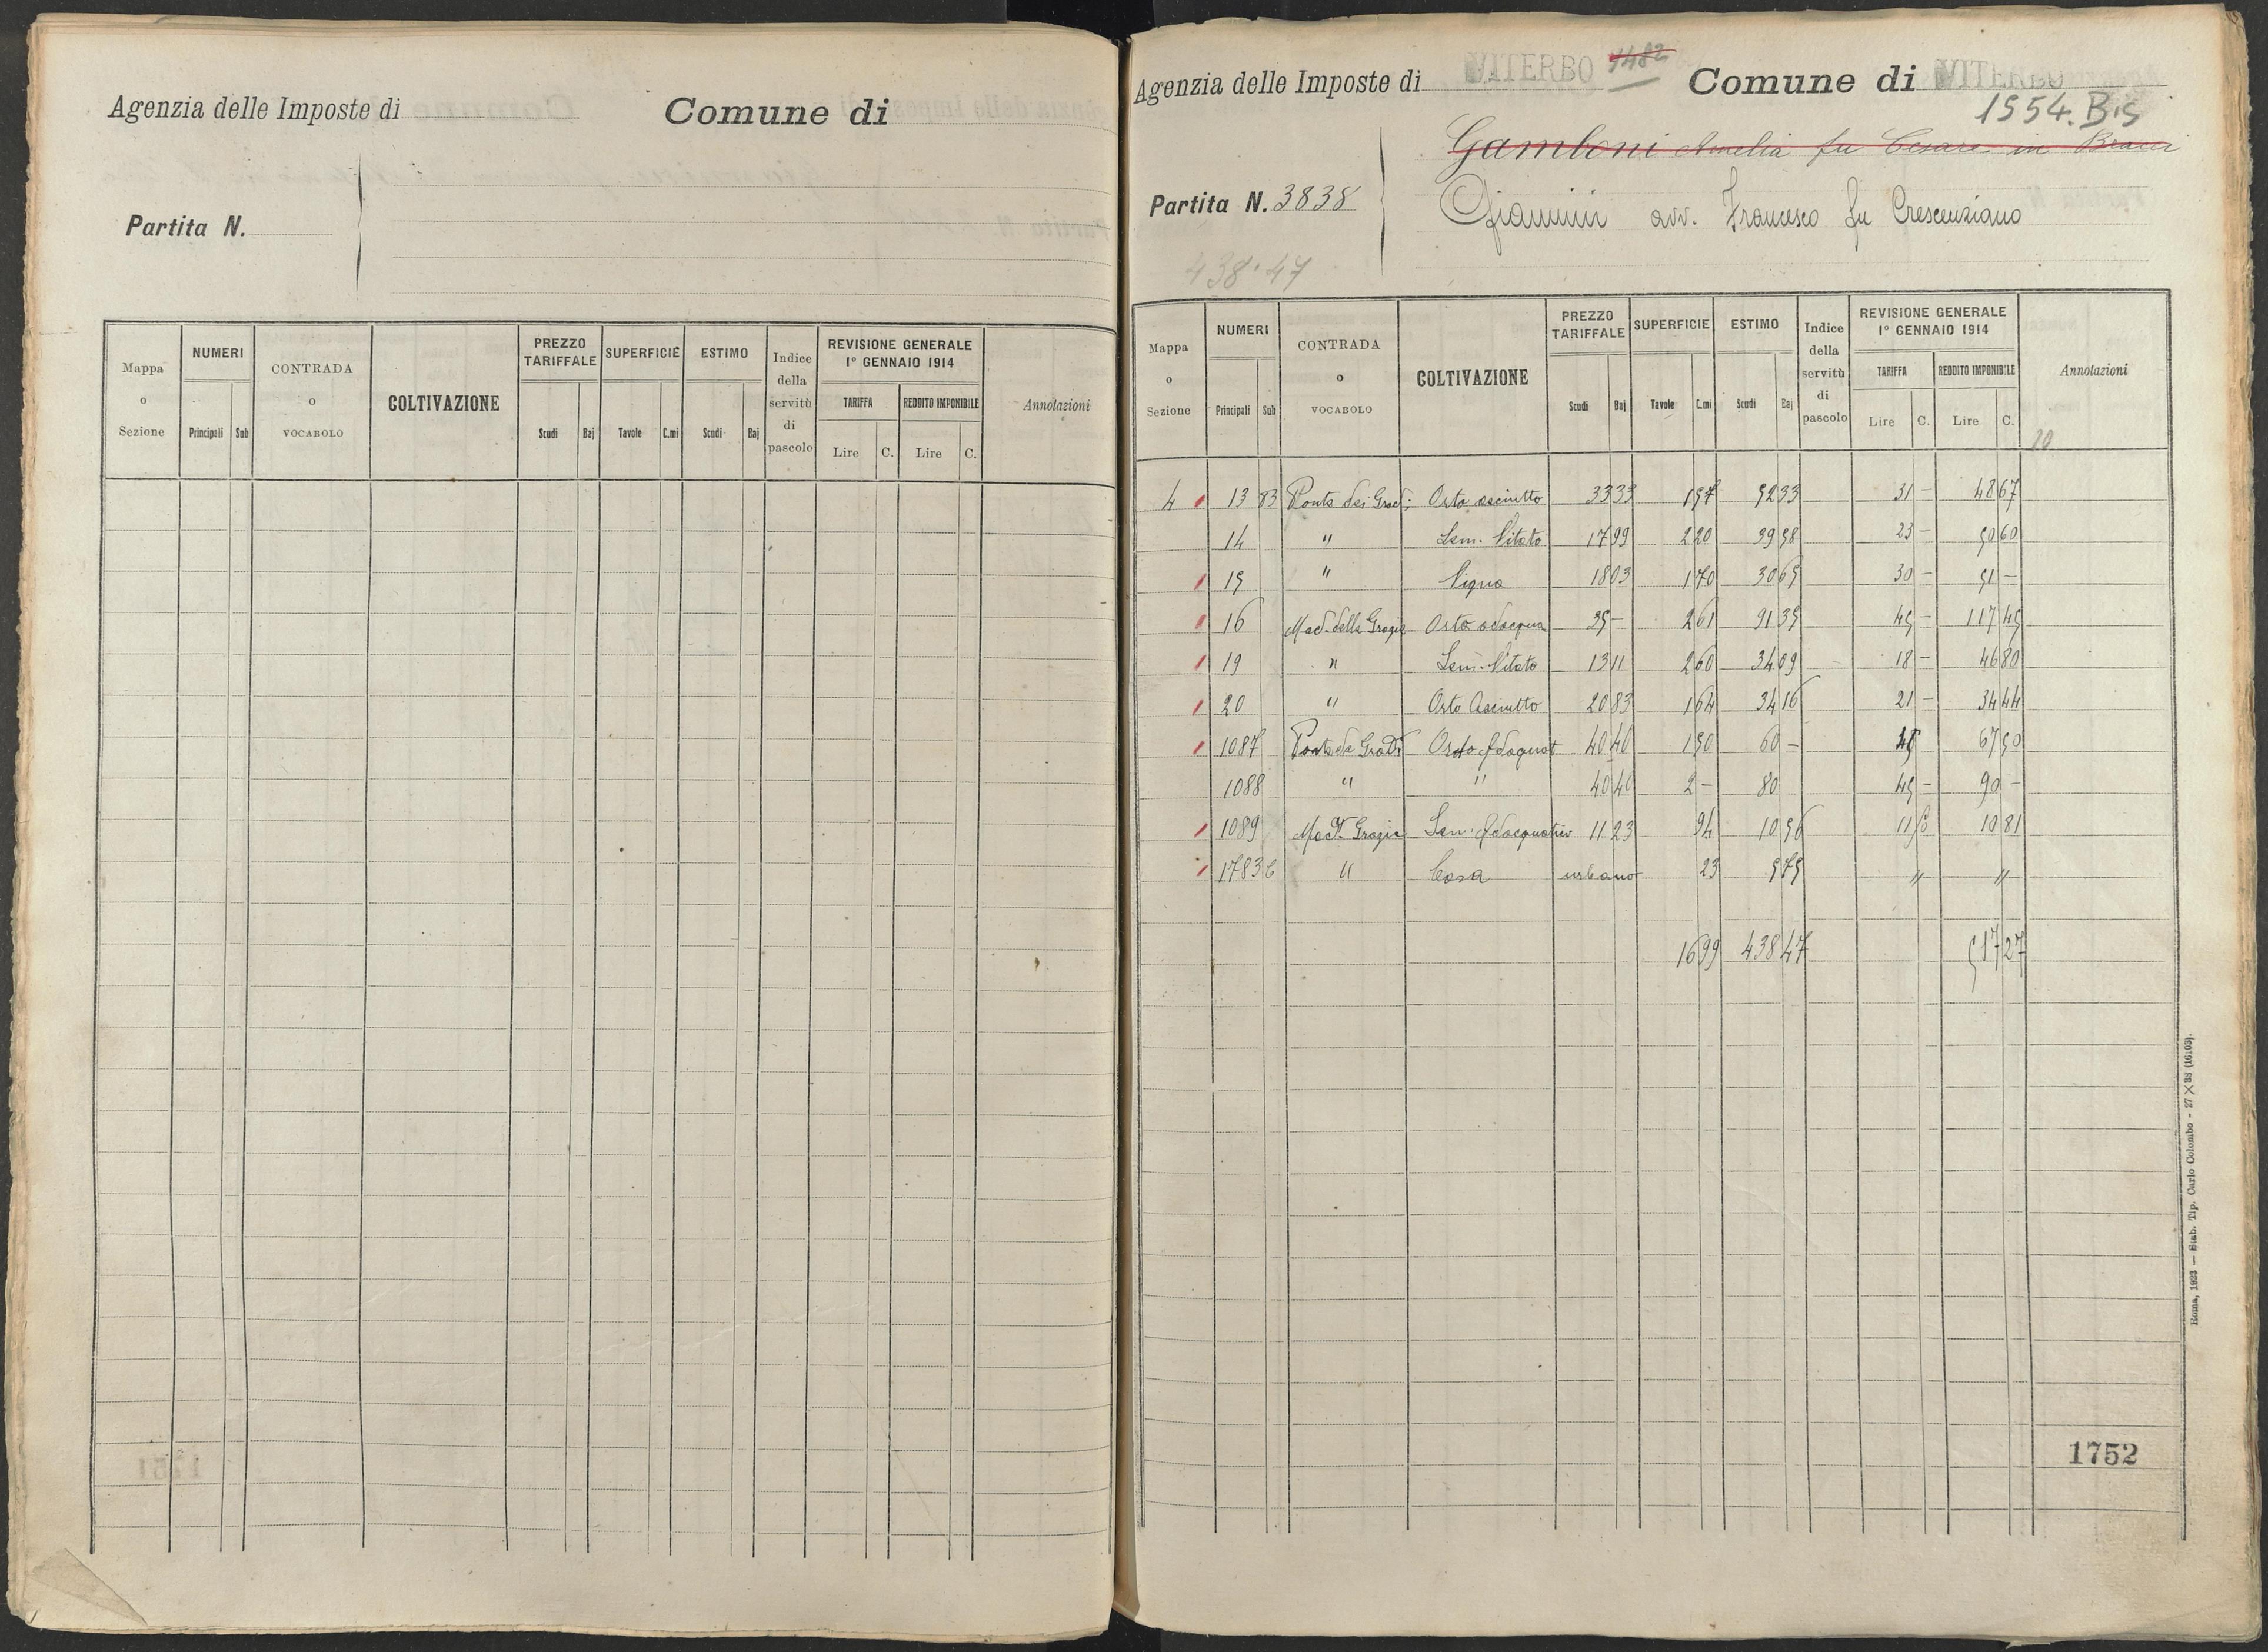 Agenzia delle Imposte di
Comune di
Partita N.
Mappa o Sezione
NUMERI
Principali Sub
CONTRADA o VOCABOLO
COLTIVAZIONE
PREZZO TARIFFALE
Scudi Baj
SUPERFICIE
Tavole C.mi
ESTIMO
Scudi Baj
Indice della servitù di pascolo
REVISIONE GENERALE 1° GENNAIO 1914
TARIFFA
Lire C.
REDDITO IMPONIBILE
Lire C.
Annotazioni
Agenzia delle Imposte di VITERBO 1482
Comune di VITERBO
1554. Bis
Gamboni Amelia fu Cesare in Bracci
Partita N. 3838
Giannini avv. Francesco fu Crescenziano
438.47
Mappa o Sezione
NUMERI
Principali Sub
CONTRADA o VOCABOLO
COLTIVAZIONE
PREZZO TARIFFALE
Scudi Baj
SUPERFICIE
Tavole C.mi
ESTIMO
Scudi Baj
Indice della servitù di pascolo
REVISIONE GENERALE 1° GENNAIO 1914
TARIFFA
Lire C.
REDDITO IMPONIBILE
Lire C.
Annotazioni
20
4 13 83 Ponte dei Gradi Orto asciutto 33 33 1 57 52 33 31 - 48 67
14 " Sem. Vitato 17 99 2 20 39 58 23 - 50 60
15 " Vigna 18 03 1 70 30 65 30 - 51 -
16 Mad. della Grazie Orto adacqua 35 - 2 61 91 35 45 - 117 45
19 " Sem. Vitato 13 11 2 60 34 09 18 - 46 80
20 " Orto Asciutto 20 83 1 64 34 16 21 - 34 44
1087 Ponte de Gradi Orto Adaquat 40 40 1 50 60 - 45 67 50
1088 " " 40 40 2 - 80 45 - 90 -
1089 Mad. Grazie Sem. Adacquativo 11 23 94 10 56 11 50 10 81
1783 " Casa urbano 23 5 75 " "
16 99 438 47 517 27
1752
Roma, 1923 — Stab. Tip. Carlo Colombo